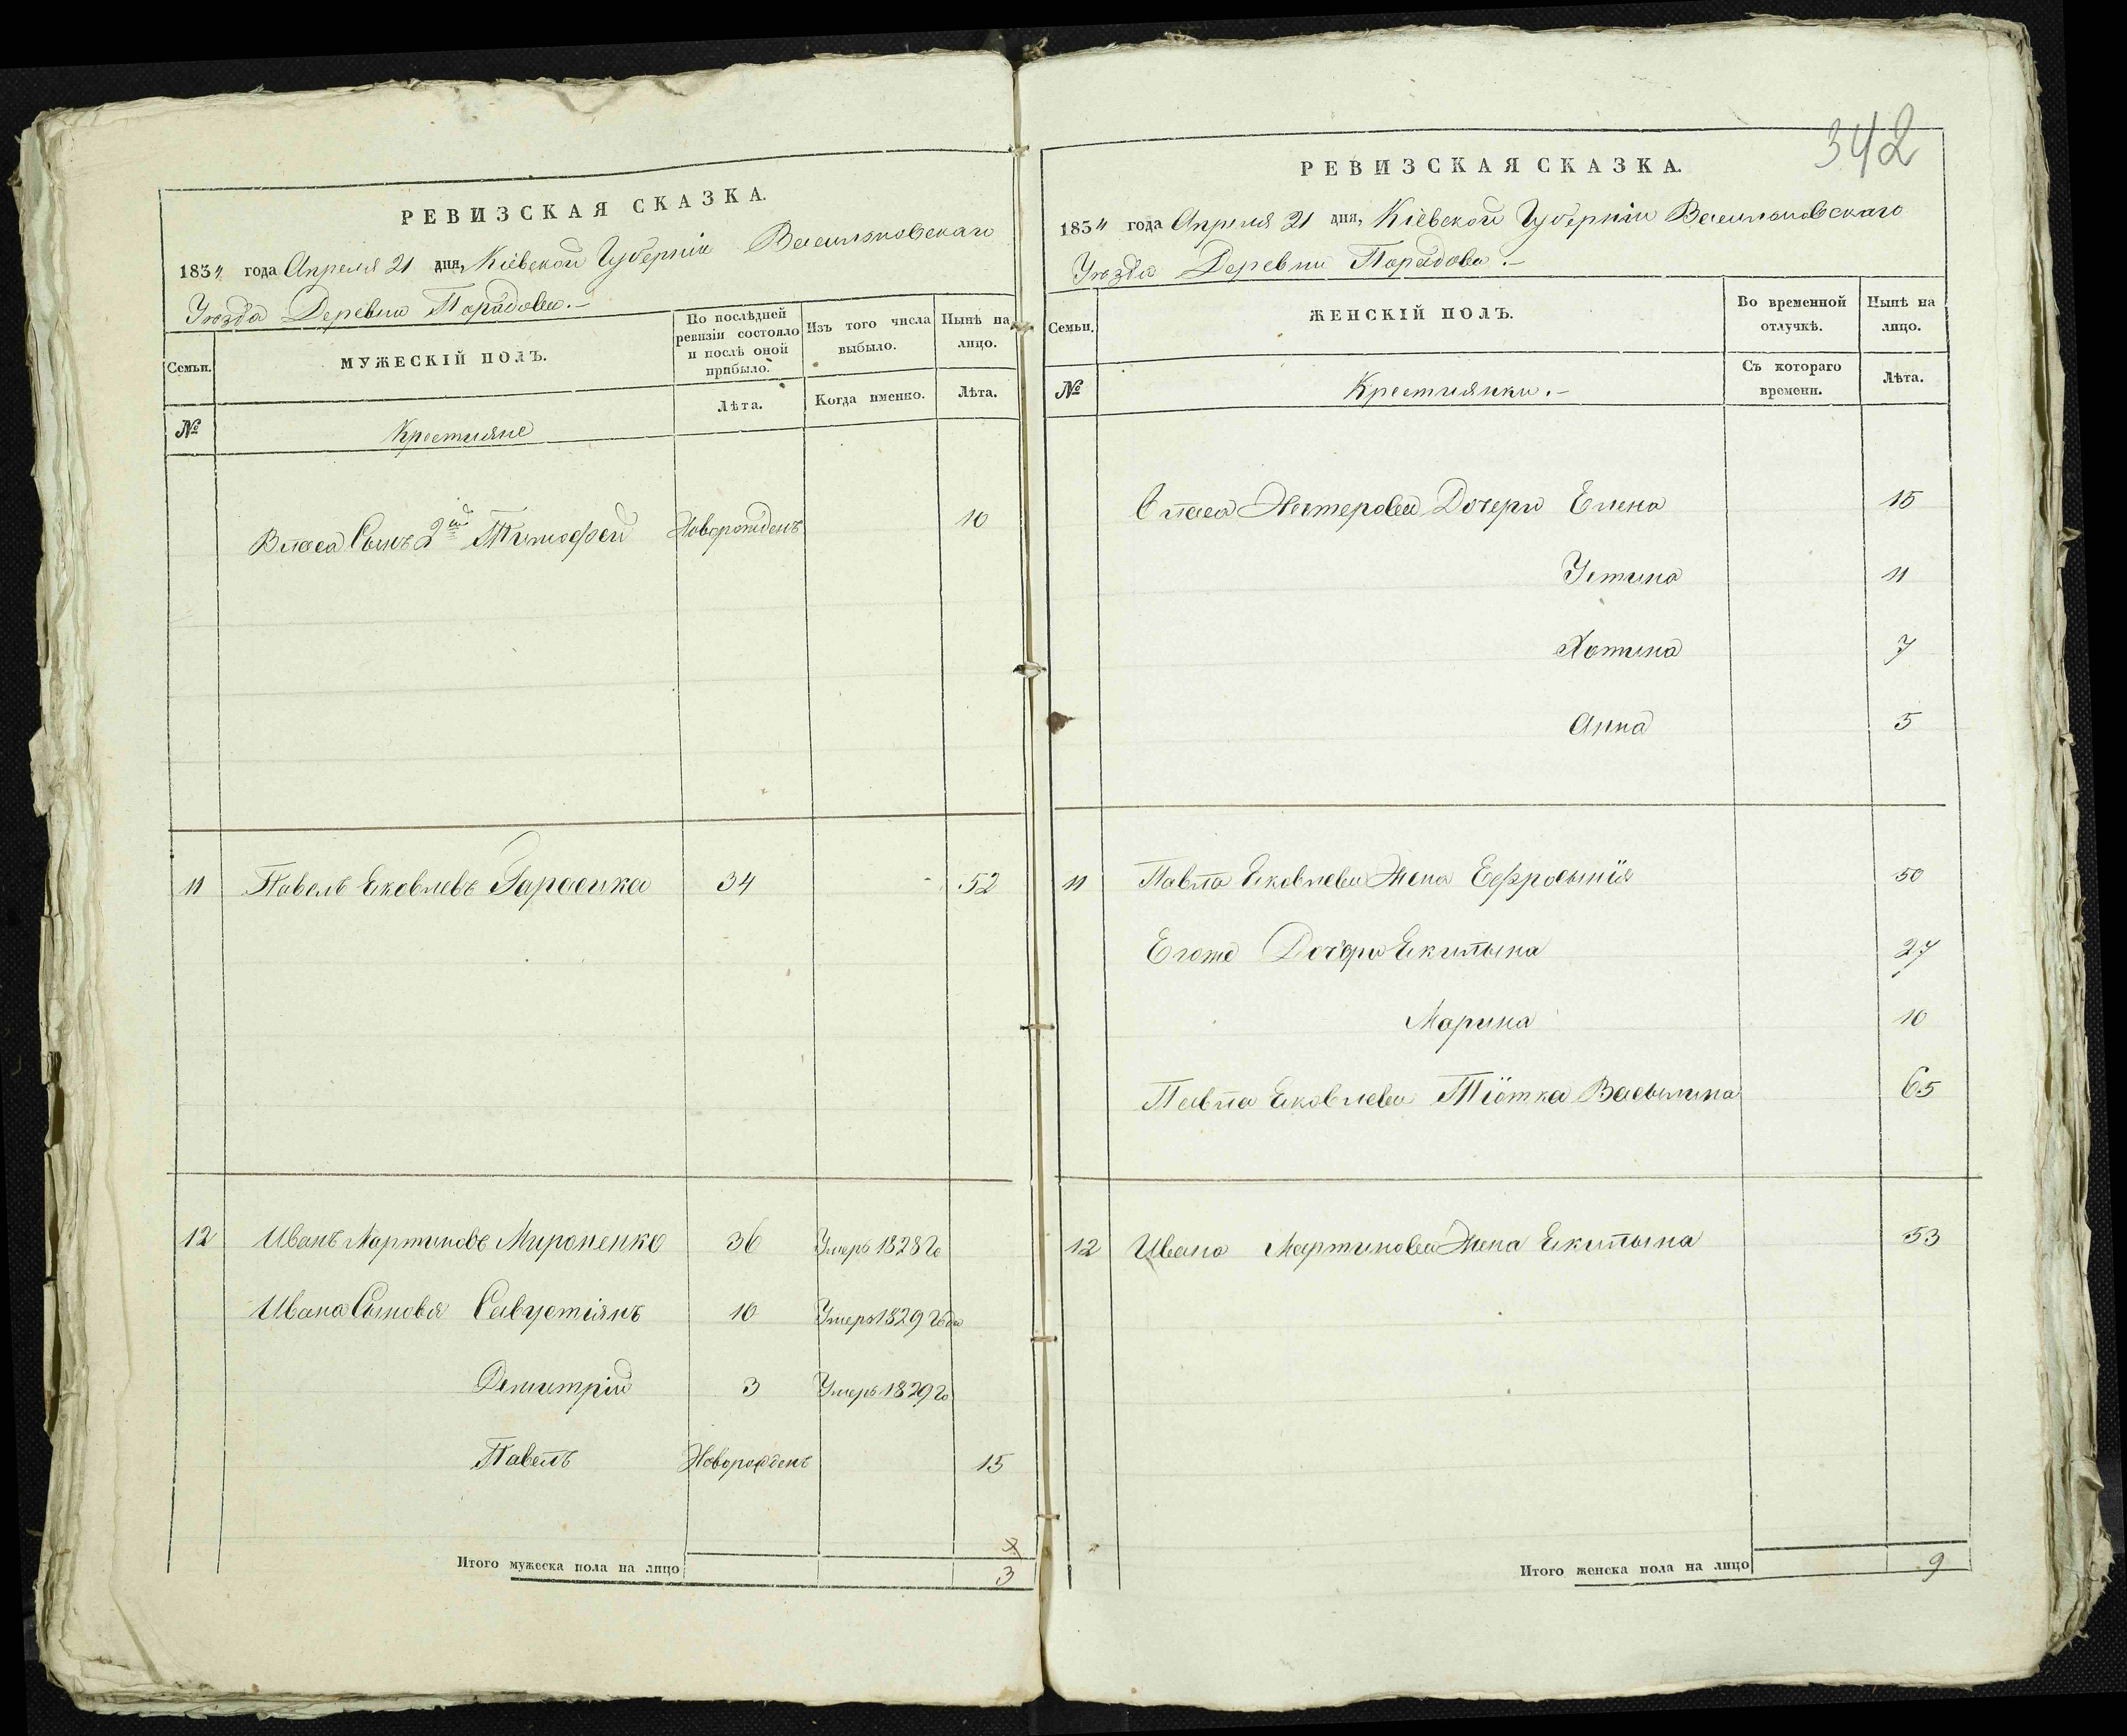 342
РЕВИЗСКАЯ СКАЗКА.
1834 года Апреля 21 дня, Кіевской Губерніи Васильковскаго
Уѣзда Деревни Парадова.-
Семьи.
МУЖЕСКІЙ ПОЛЪ.
По послѣдней ревизіи состояло и послѣ оной прибыло.
Изъ того числа выбыло.
Нынѣ на лицо.
№
Крестияне
Лѣта.
Когда именно.
Лѣта.
Власа Сынъ 2й Тимофей Новорожденъ 10
11 Павелъ Яковлевъ Гарасика 34 52
12 Иванъ Мартиновъ Мироненко 36 Умеръ 1828 го
Ивана Сыновя Савустіянъ 10 Умеръ 1829 года
Демитрій 3 Умеръ 1829 го
Павелъ Новорожденъ 15
Итого мужеска пола на лицо 3
РЕВИЗСКАЯ СКАЗКА.
1834 года Апреля 21 дня, Кіевской Губерніи Васильковскаго
Уѣзда Деревни Парадова.-
Семьи.
ЖЕНСКІЙ ПОЛЪ.
Во временной отлучкѣ.
Нынѣ на лицо.
№
Крестиянки.-
Съ котораго времени.
Лѣта.
Нестерова Дочери Елена 15
Устина 11
Хотина 7
Анна 5
11 Павла Яковлева Жена Ефросинія 50
Егоже Дочери Екилына 27
Марина 10
Павла Яковлева Тіотка Васылина 65
12 Ивана Мартинова Жена Екилына 53
Итого женска пола на лицо 9